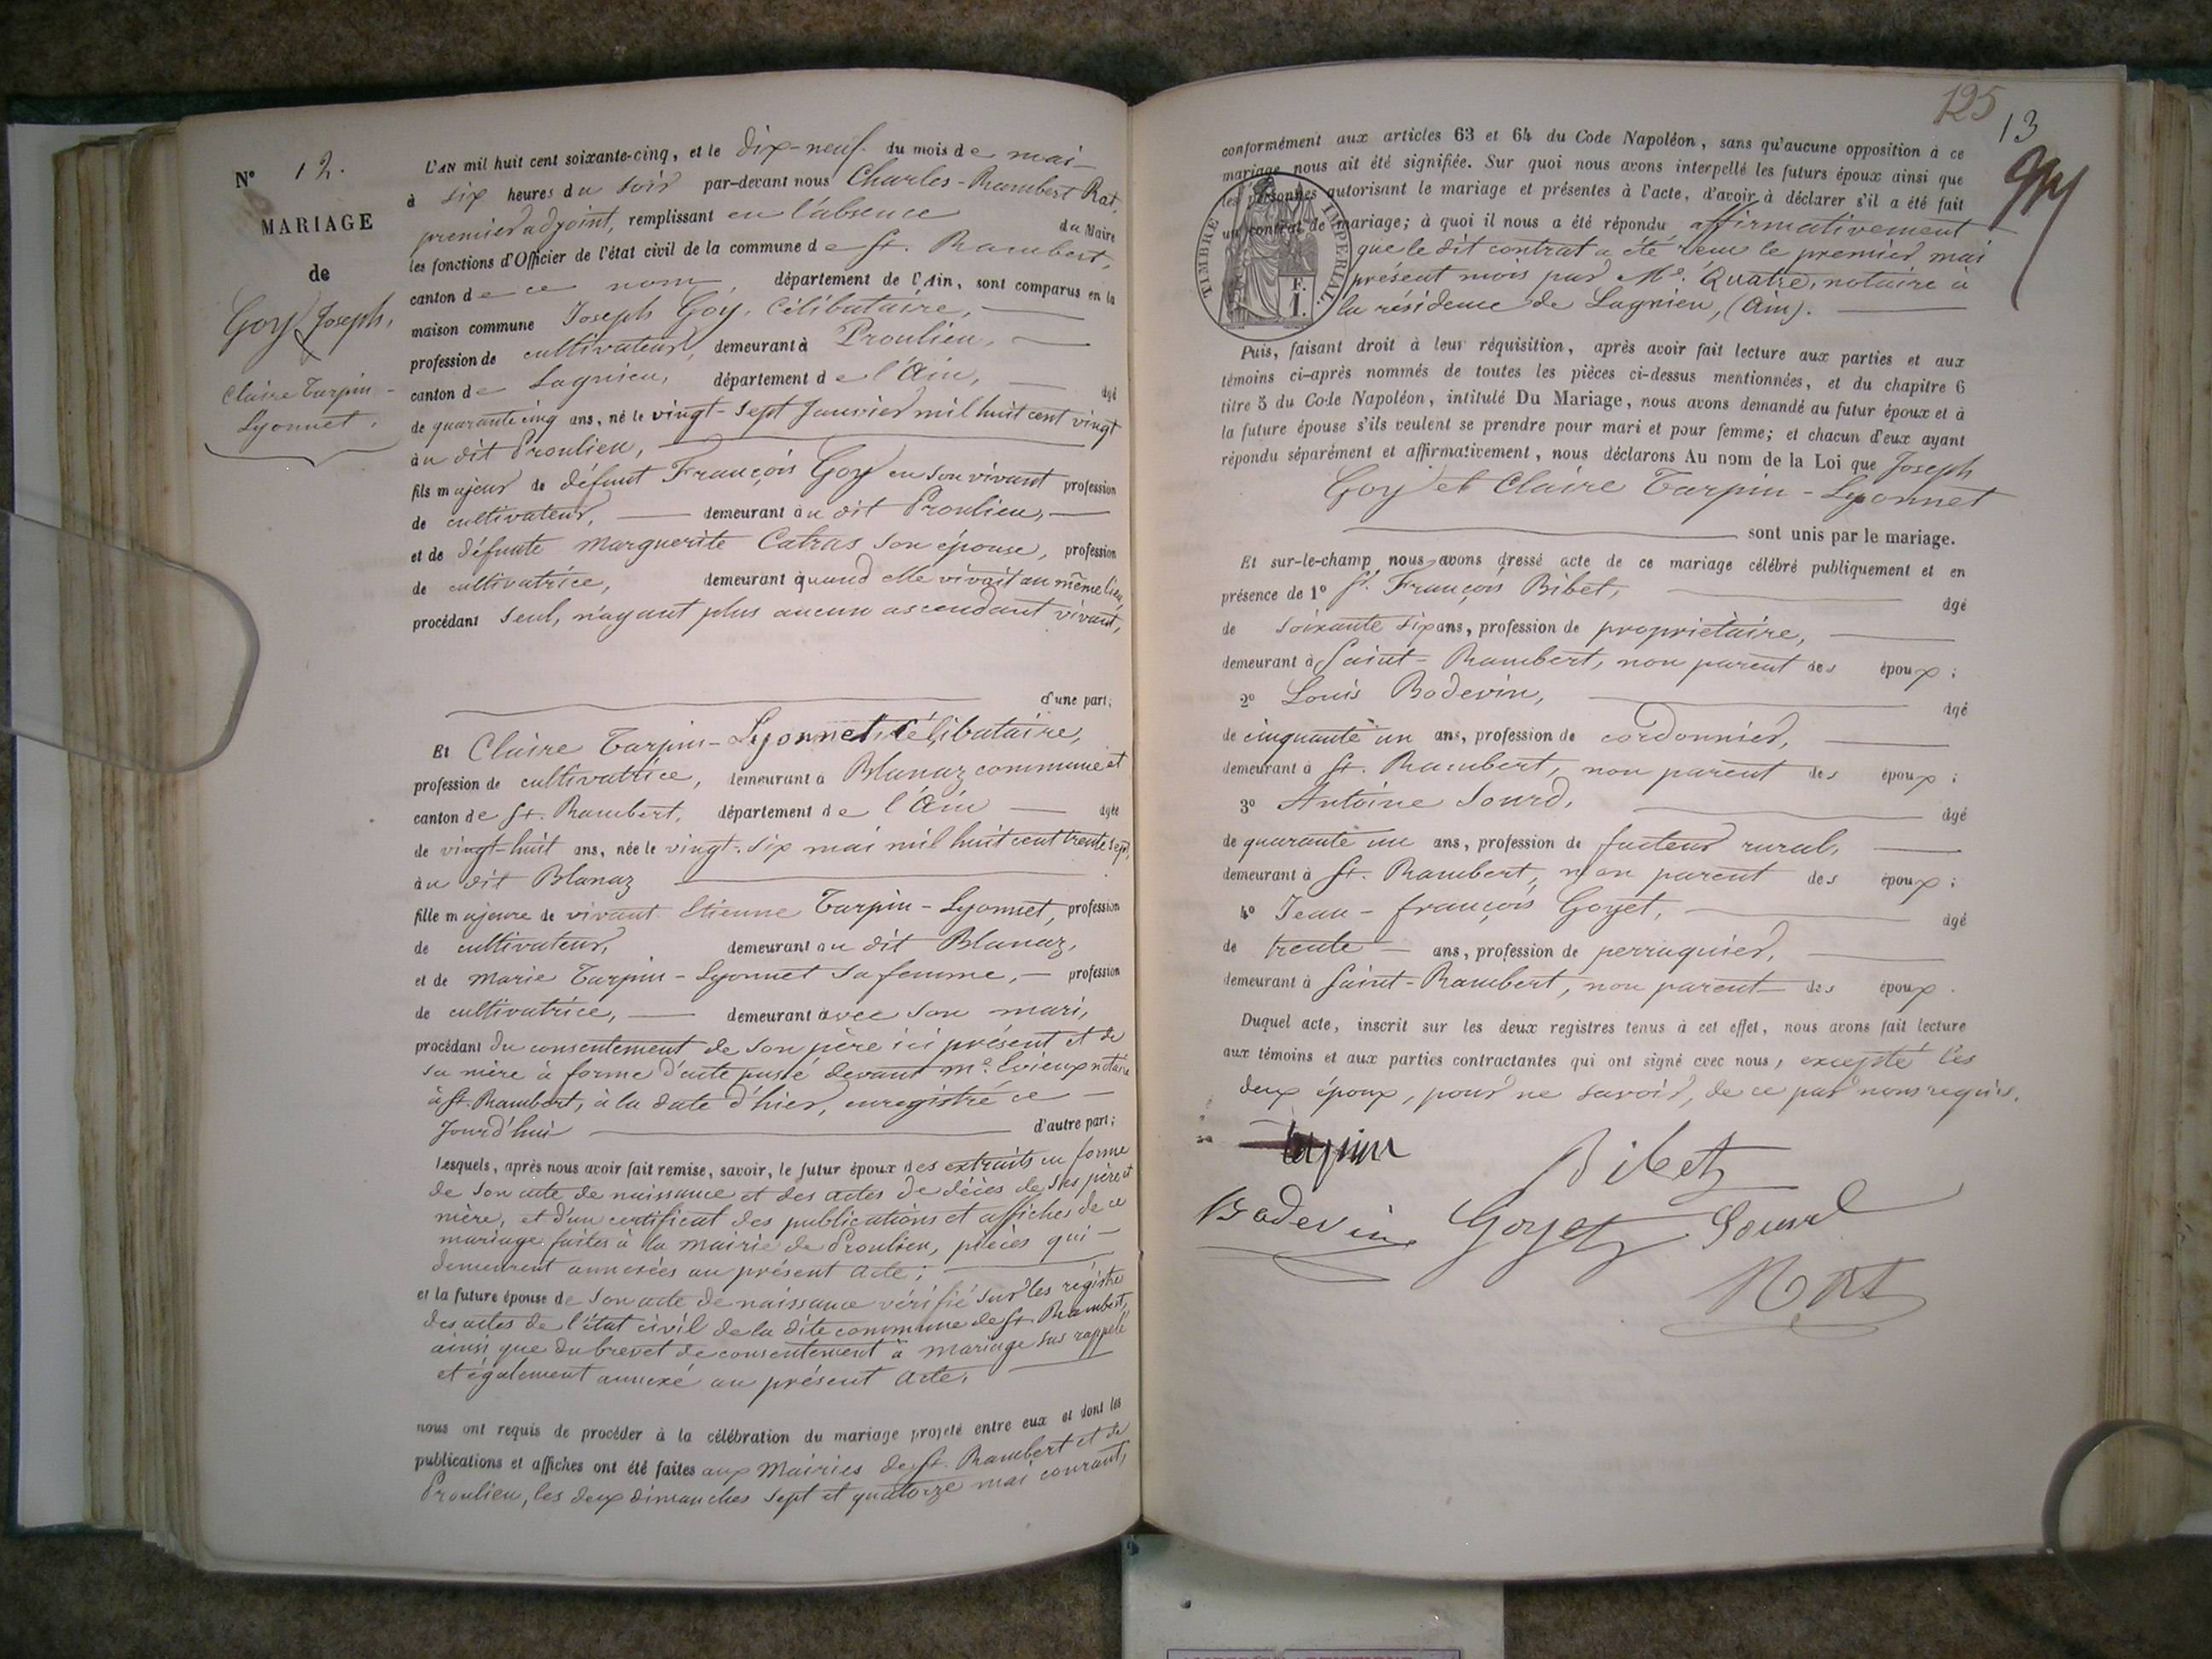 N° 12.
MARIAGE
de
Goy Joseph,
Claire Tarpin-
Lyonnet.
L'AN mil huit cent soixante-cinq, et le dix-neuf du mois de mai
à six heures du soir par-devant nous Charles-Rambert Rat,
premier adjoint, remplissant en l'absence du Maire
les fonctions d'Officier de l'état civil de la commune de St. Rambert,
canton de ce nom, département de l'Ain, sont comparus en la
maison commune Joseph Goy, Célibataire,
profession de cultivateur, demeurant à Proulieu,
canton de Lagnieu, département de l'Ain, âgé
de quarante cinq ans, né le vingt-sept Janvier mil huit cent vingt
au dit Proulieu,
fils majeur de défunt François Goy en son vivant profession
de cultivateur, demeurant au dit Proulieu,
et de défunte Marguerite Catras son épouse, profession
de cultivatrice, demeurant quand elle vivait au même lieu,
procédant seul, n'ayant plus aucun ascendant vivant,
d'une part;
Et Claire Tarpin-Lyonnet, Célibataire,
profession de cultivatrice, demeurant à Blanaz commune et
canton de St. Rambert, département de l'Ain âgée
de vingt-huit ans, née le vingt-six mai mil huit cent trente sept,
au dit Blanaz
fille majeure de vivant Etienne Tarpin-Lyonnet, profession
de cultivateur, demeurant au dit Blanaz,
et de Marie Tarpin-Lyonnet sa femme, profession
de cultivatrice, demeurant avec son mari,
procédant du consentement de son père ici présent et de
sa mère à forme d'acte passé devant Me. Evieux notaire
à St. Rambert, à la date d'hier, enregistré ce
Jourd'hui d'autre part;
Lesquels, après nous avoir fait remise, savoir, le futur époux des extraits en forme
de son acte de naissance et des actes de décès de ses père et
mère, et d'un certificat des publications et affiches de ce
mariage faites à la mairie de Proulieu, pièces qui
demeurent annexées au présent acte;
et la future épouse de son acte de naissance vérifié sur les registre
des actes de l'état civil de la dite commune de St. Rambert,
ainsi que du brevet de consentement à mariage sus rappelé
et également annexé au présent acte.
nous ont requis de procéder à la célébration du mariage projeté entre eux et dont les
publications et affiches ont été faites aux Mairies de St. Rambert et de
Proulieu, les deux dimanches sept et quatorze mai courant,
125
13
conformément aux articles 63 et 64 du Code Napoléon, sans qu'aucune opposition à ce
mariage nous ait été signifiée. Sur quoi nous avons interpellé les futurs époux ainsi que
les personnes autorisant le mariage et présentes à l'acte, d'avoir à déclarer s'il a été fait
un contrat de mariage; à quoi il nous a été répondu affirmativement
que le dit contrat a été reçu le premier mai
présent mois par Me. Quatre, notaire à
la résidence de Lagnieu, (Ain).
TIMBRE IMPERIAL
F.
1.
Puis, faisant droit à leur réquisition, après avoir fait lecture aux parties et aux
témoins ci-après nommés de toutes les pièces ci-dessus mentionnées, et du chapitre 6
titre 5 du Code Napoléon, intitulé Du Mariage, nous avons demandé au futur époux et à
la future épouse s'ils veulent se prendre pour mari et pour femme; et chacun d'eux ayant
répondu séparément et affirmativement, nous déclarons Au nom de la Loi que Joseph
Goy et Claire Tarpin-Lyonnet
sont unis par le mariage.
Et sur-le-champ nous avons dressé acte de ce mariage célébré publiquement et en
présence de 1° St. François Bibet, âgé
de soixante six ans, profession de propriétaire,
demeurant à Saint-Rambert, non parent des époux;
2° Louis Bodevin, âgé
de cinquante un ans, profession de cordonnier,
demeurant à St. Rambert, non parent des époux;
3° Antoine Sourd, âgé
de quarante un ans, profession de facteur rural,
demeurant à St. Rambert, non parent des époux;
4° Jean-françois Goyet, âgé
de trente ans, profession de perruquier,
demeurant à Saint-Rambert, non parent des époux.
Duquel acte, inscrit sur les deux registres tenus à cet effet, nous avons fait lecture
aux témoins et aux parties contractantes qui ont signé avec nous, excepté les
deux époux, pour ne savoir, de ce par nous requis.
tarpin Bibet
Bodevin Goyet Sourd
Rat